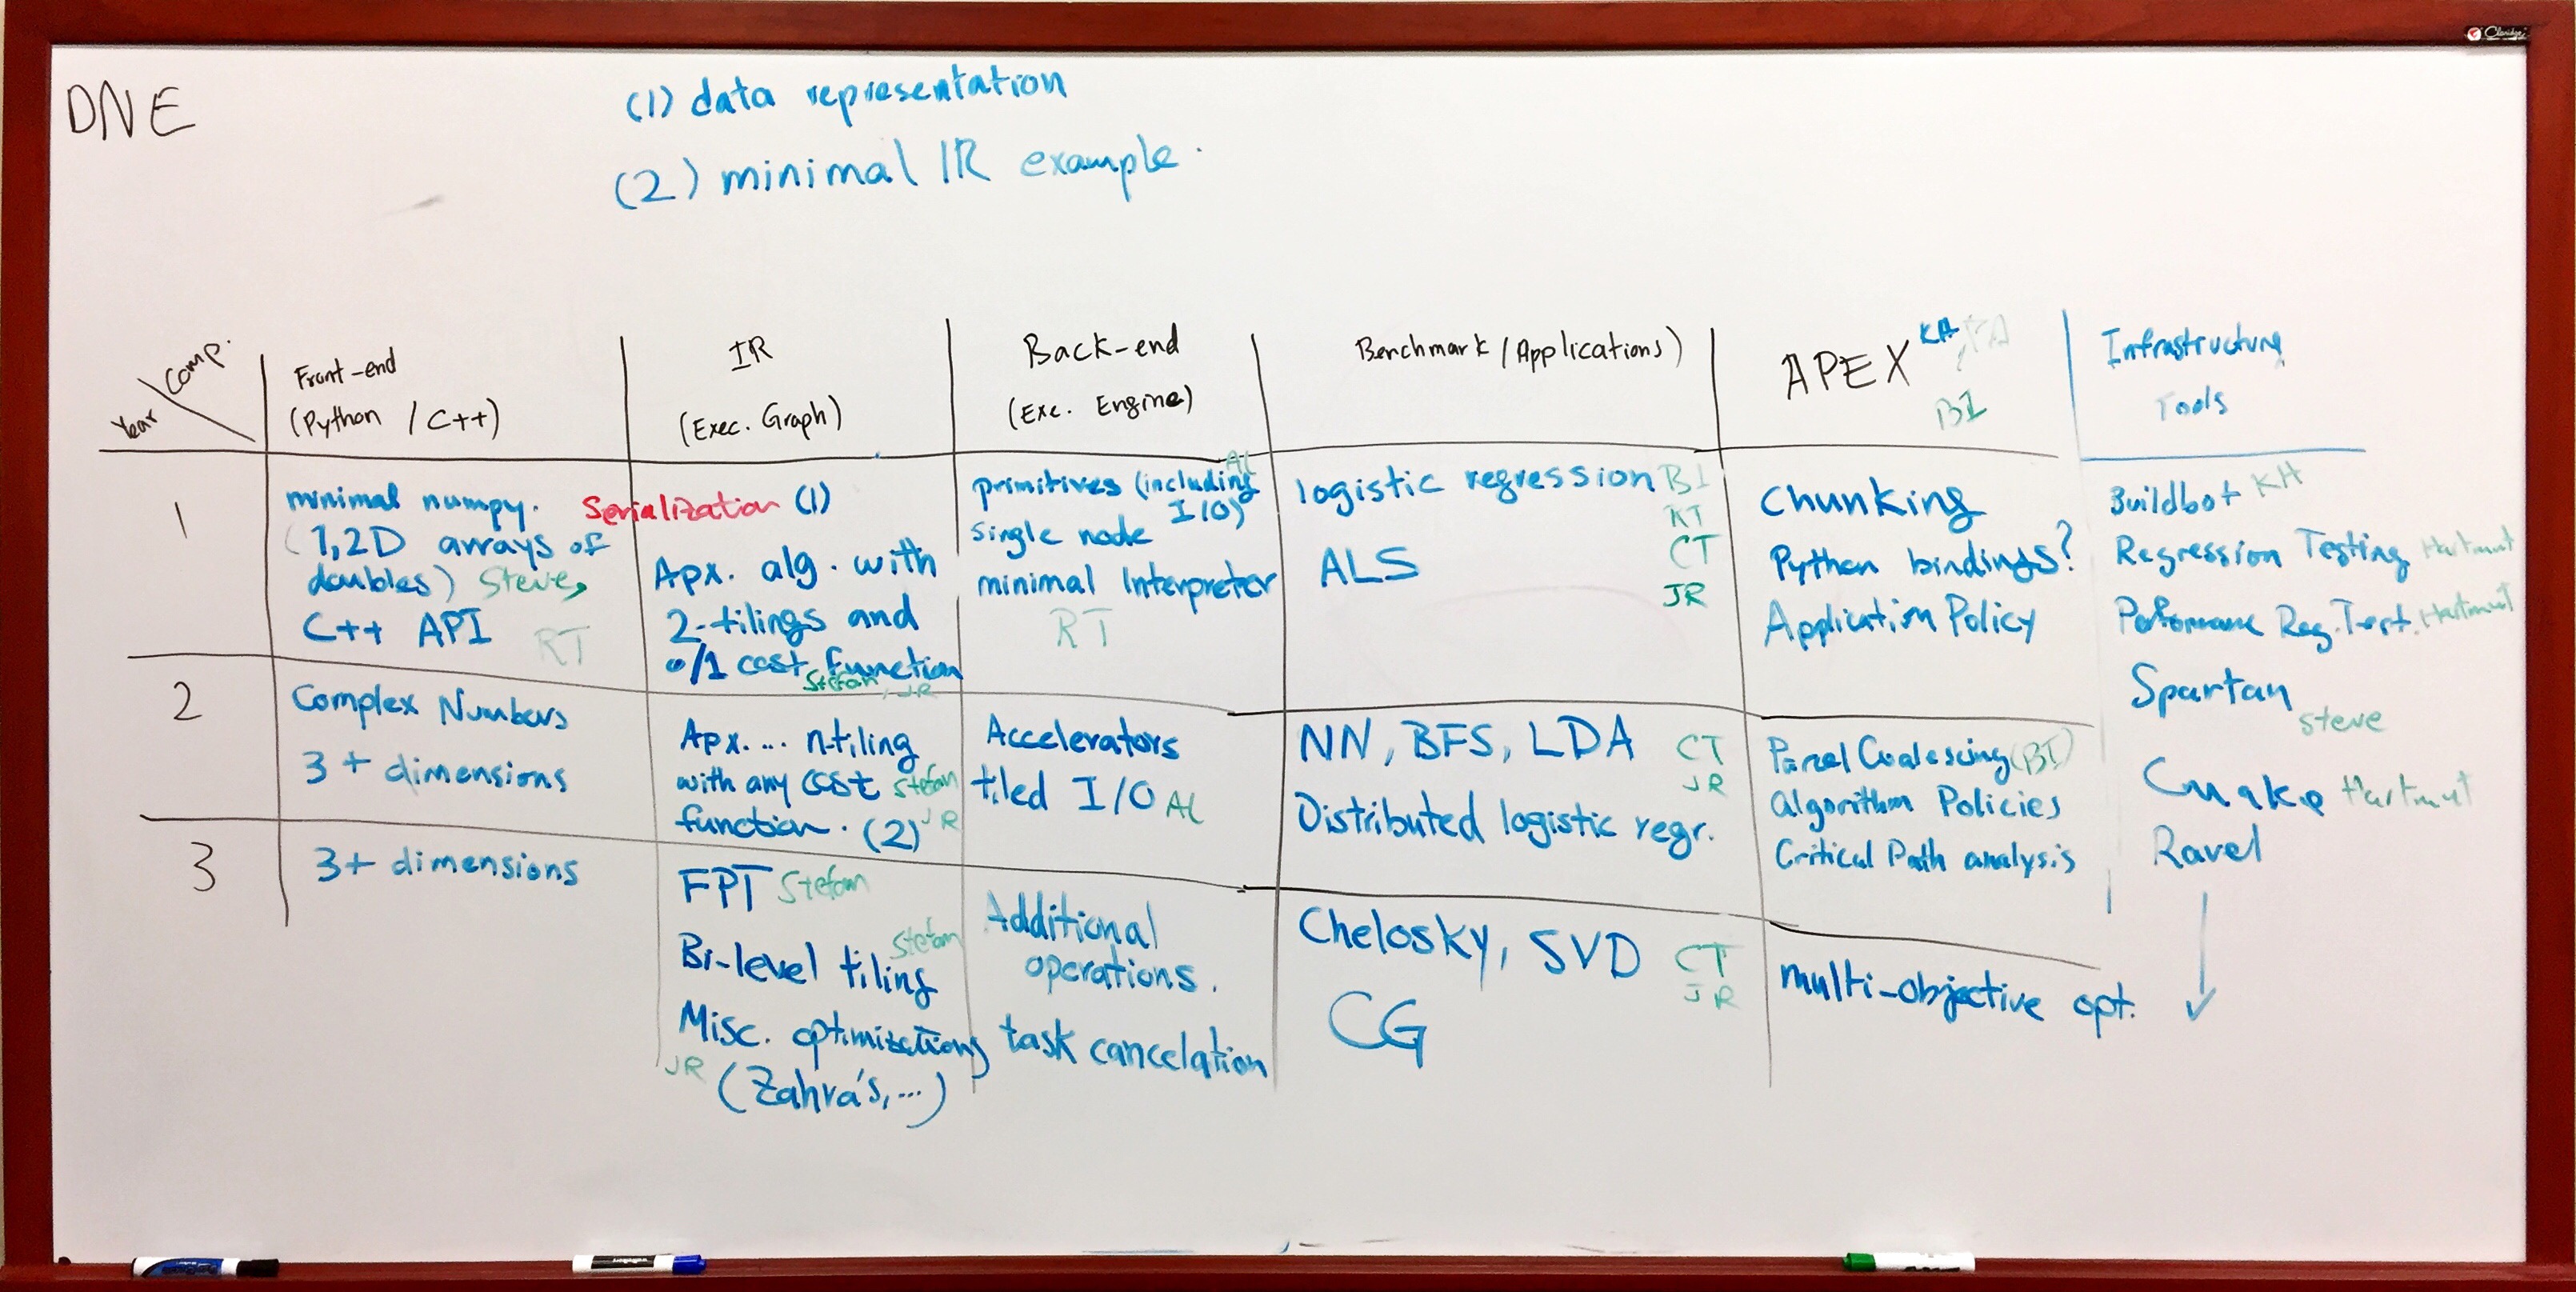 Claridge
DNE
(1) data representation
(2) minimal IR example.
Year / Comp.
Front-end
(Python / C++)
IR
(Exec. Graph)
Back-end
(Exe. Engine)
Benchmark / Applications)
APEX KH,
BI
Infrastructure
Tools
1
minimal numpy.
(1,2D arrays of
doubles) Steve,
C++ API RT
Serialization (1)
Apx. alg. with
2-tilings and
0/1 cost function
Stefan, JR
AL
primitives (including
I/O)
single node
minimal Interpreter
RT
logistic regression BI
RT
ALS CT
JR
Chunking
Python bindings?
Application Policy
Buildbot KH
Regression Testing Hartmut
Performance Reg. Test. Hartmut
Spartan
Steve
Cmake Hartmut
Ravel
2
Complex Numbers
3+ dimensions
Apx. ... n-tiling
with any cost Stefan
function. (2) JR
Accelerators
tiled I/O AL
NN, BFS, LDA CT
JR
Distributed logistic regr.
Parcel Coalescing (BI)
Algorithm Policies
Critical Path analysis
3
3+ dimensions
FPT Stefan
Stefan
Bi-level tiling
Misc. optimizations
JR (Zahra's, ...)
Additional
operations.
task cancelation
Chelosky, SVD CT
JR
CG
multi-objective opt.